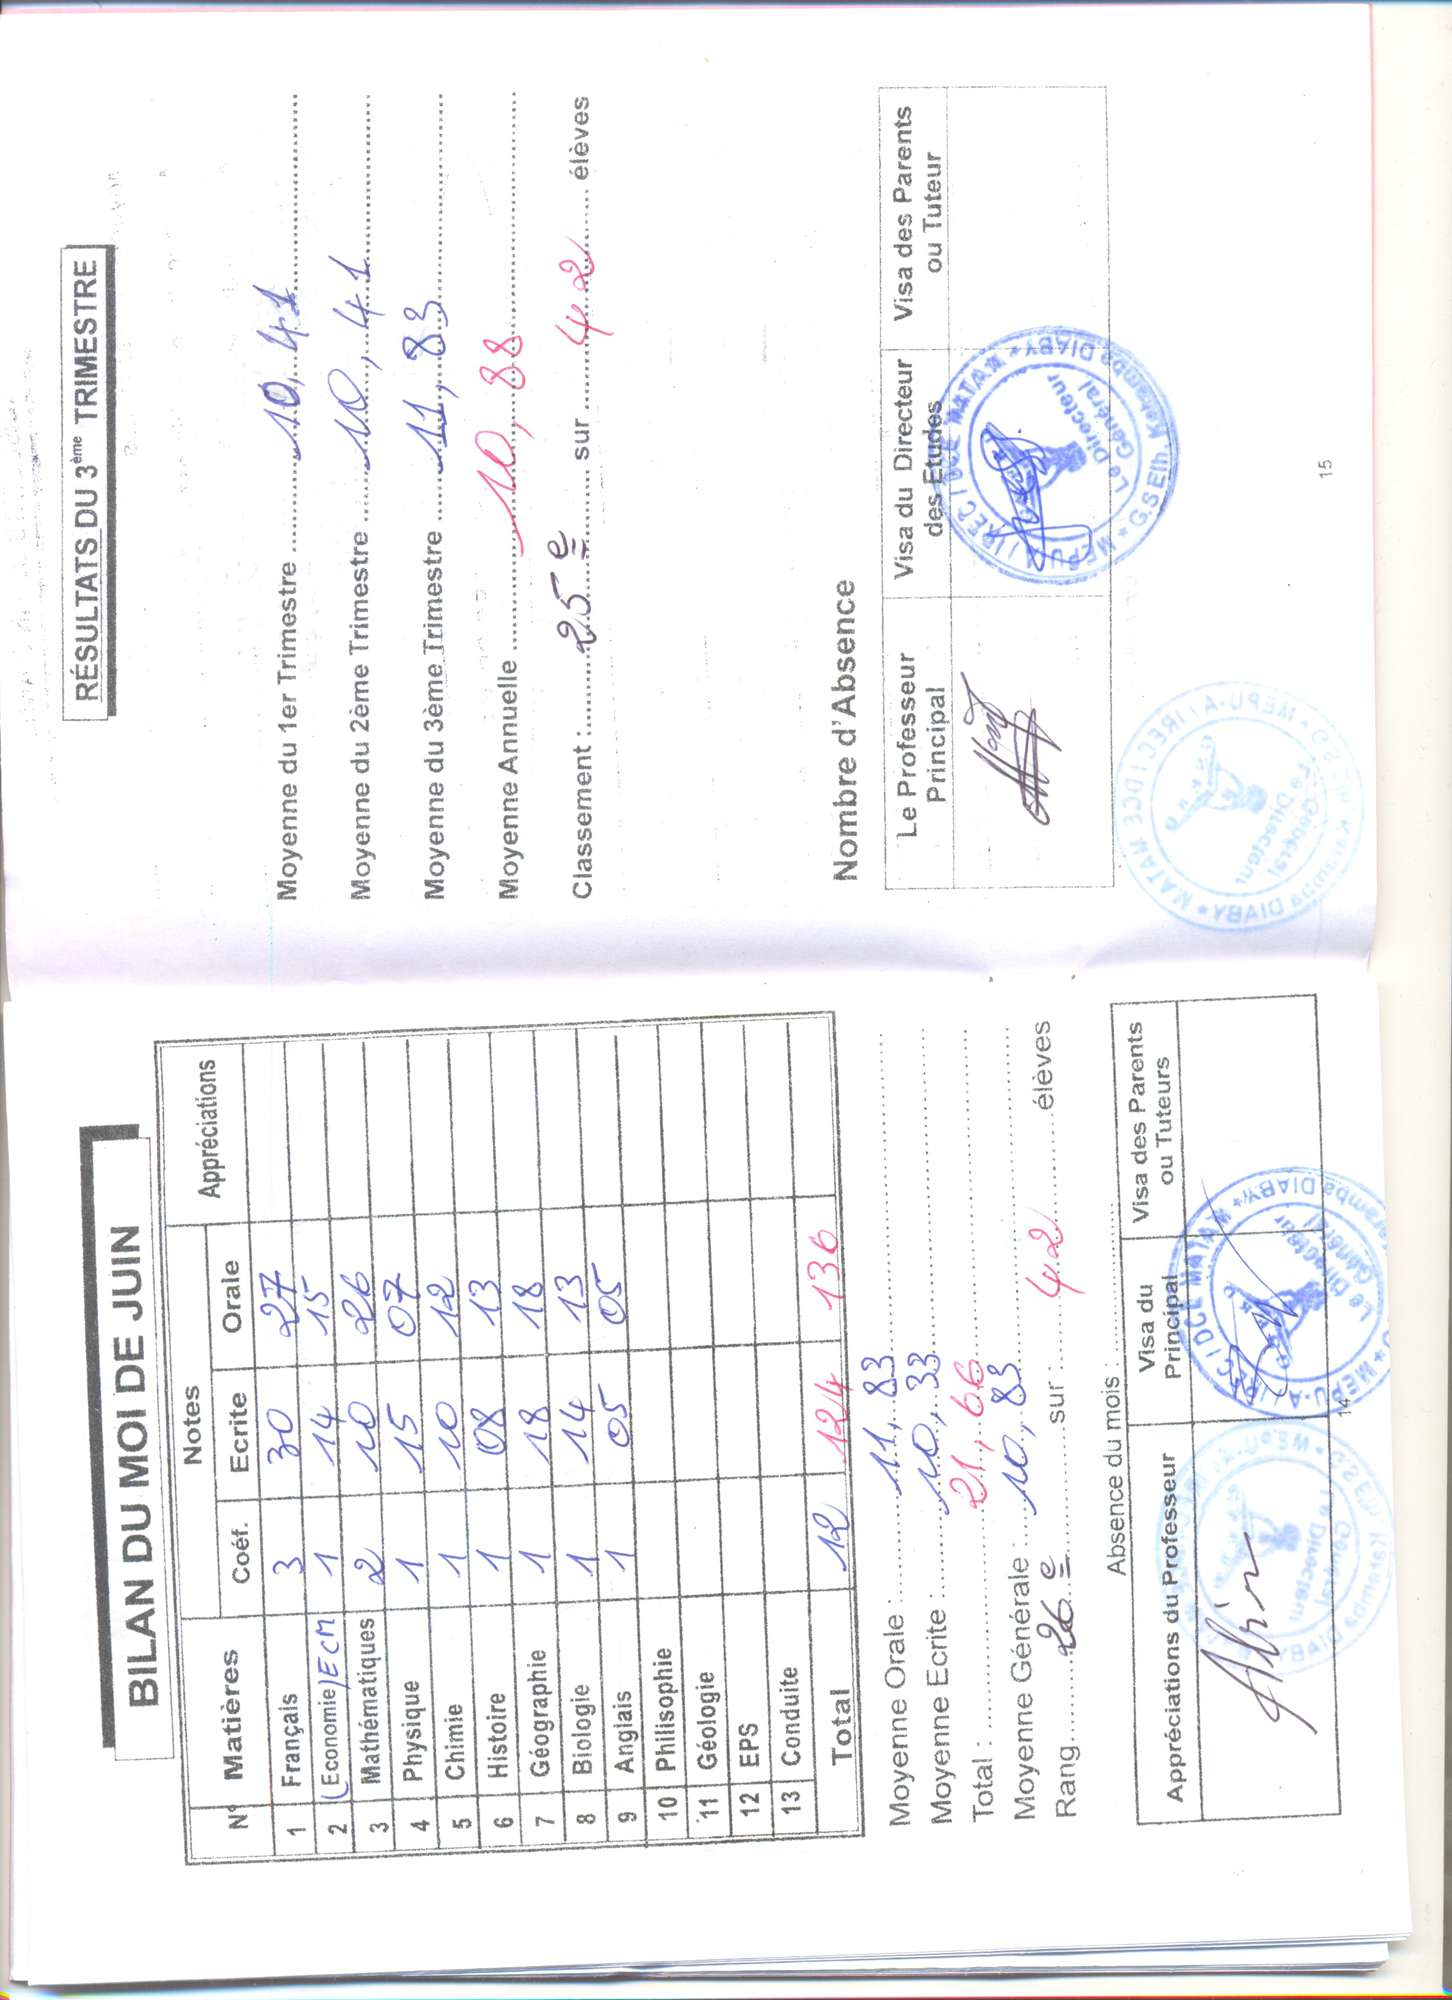 BILAN DU MOI DE JUIN
N° Matières Notes Appréciations
Coéf. Ecrite Orale
1 Français 3 30 27
2 (Economie/ECM 1 14 15
3 Mathématiques 2 10 26
4 Physique 1 15 07
5 Chimie 1 10 12
6 Histoire 1 08 13
7 Géographie 1 18 18
8 Biologie 1 14 13
9 Anglais 1 05 05
10 Philisophie
11 Géologie
12 EPS
13 Conduite
Total 12 124 136
Moyenne Orale : 11,83
Moyenne Ecrite : 10,33
Total : 21,66
Moyenne Générale : 10,83
Rang 26e sur : 42 élèves
Absence du mois :
Appréciations du Professeur
Visa du Principal
Visa des Parents ou Tuteurs
MEPU-A / IREC / DCE MATAM
Le Directeur Général
14
RÉSULTATS DU 3ème TRIMESTRE
Moyenne du 1er Trimestre 10,41
Moyenne du 2ème Trimestre 10,41
Moyenne du 3ème Trimestre 11,83
Moyenne Annuelle 10,88
Classement : 25e sur 42 élèves
Nombre d'Absence
Le Professeur Principal
Visa du Directeur des Etudes
Visa des Parents ou Tuteur
MEPU-A / IREC / DCE MATAM
G.S Elh Karamba DIABY
Le Directeur Général
15